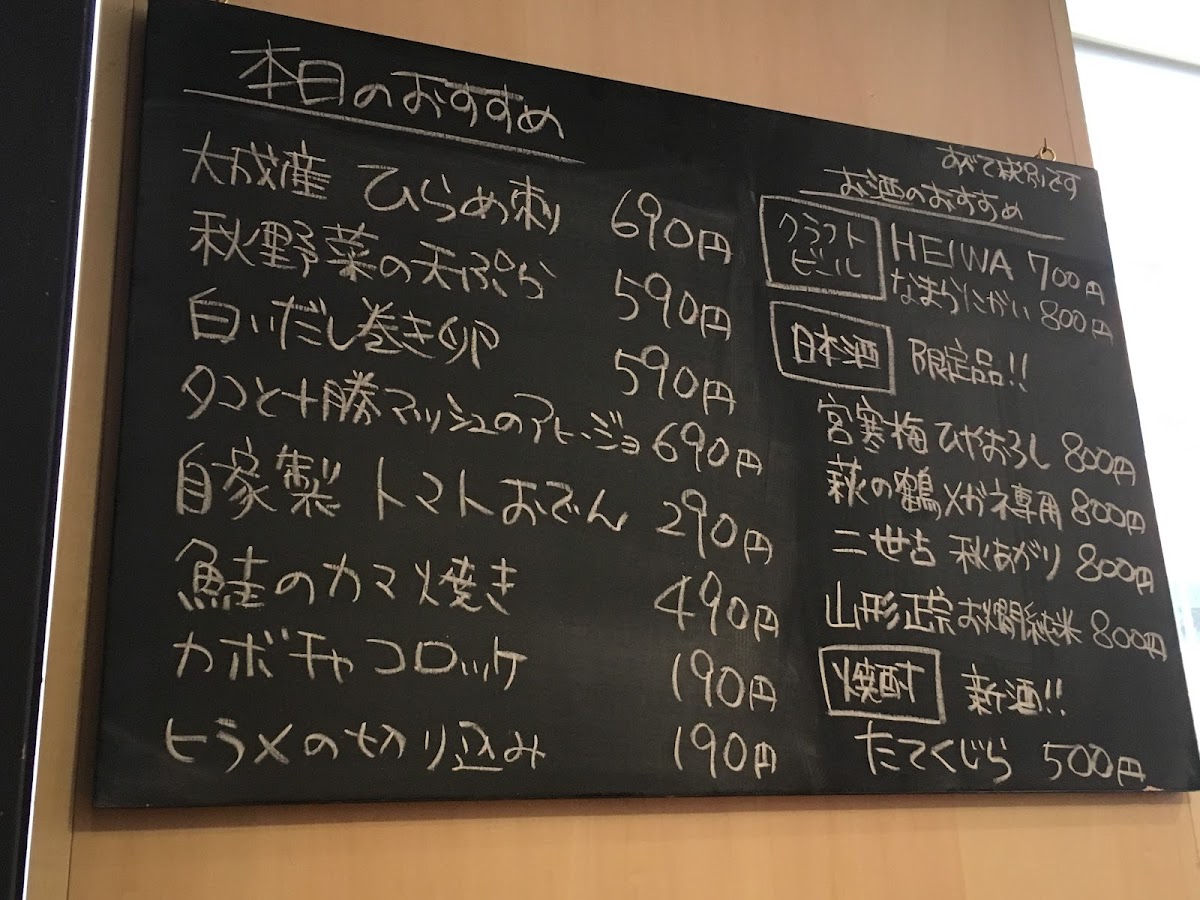 本日のおすすめ
大成産 ひらめ刺 690円
秋野菜の天ぷら 590円
白いだし巻き卵 590円
タコと十勝マッシュのアヒージョ 690円
自家製 トマトおでん 290円
鮭のカマ焼き 490円
カボチャコロッケ 190円
ヒラメの切り込み 190円
すべて税別です
お酒のおすすめ
クラフトビール
HEIWA 700円
なまらにがい 800円
日本酒 限定品!!
宮寒梅 ひやおろし 800円
萩の鶴 メガネ専用 800円
二世古 秋あがり 800円
山形正宗 お燗純米 800円
焼酎 新酒!!
たてくじら 500円